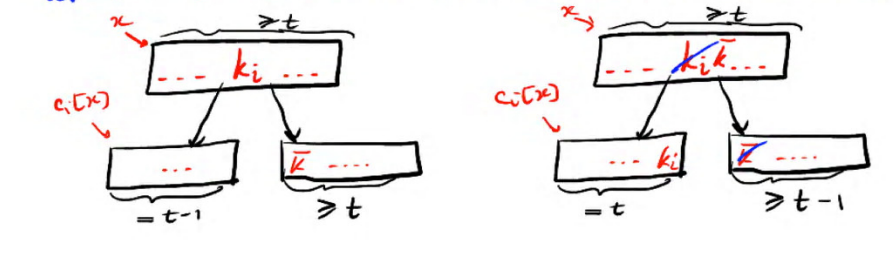 x ≥ t
... k_i ...
c_i[x]
... k̄ ....
= t-1 ≥ t
x ≥ t
... k_i k̄ ...
c_i[x]
... k_i k̄ ....
= t ≥ t-1